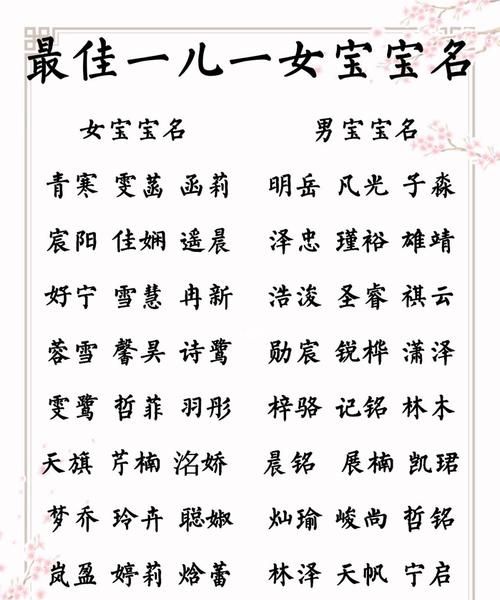 最佳一儿一女宝宝名
女宝宝名 男宝宝名
青寒 雯菡 函莉 明岳 凡光 子淼
宸阳 佳娴 遥晨 泽忠 瑾裕 雄靖
好宁 雪慧 冉新 浩浚 圣睿 祺云
蓉雪 馨昊 诗鹭 勋宸 锐桦 潇泽
雯鹭 哲菲 羽彤 梓骆 记铭 林木
天旗 芹楠 洺娇 晨铭 展楠 凯珺
梦乔 玲卉 聪婌 灿瑜 峻尚 哲铭
岚盈 婷莉 焓蕾 林泽 天帆 宁启